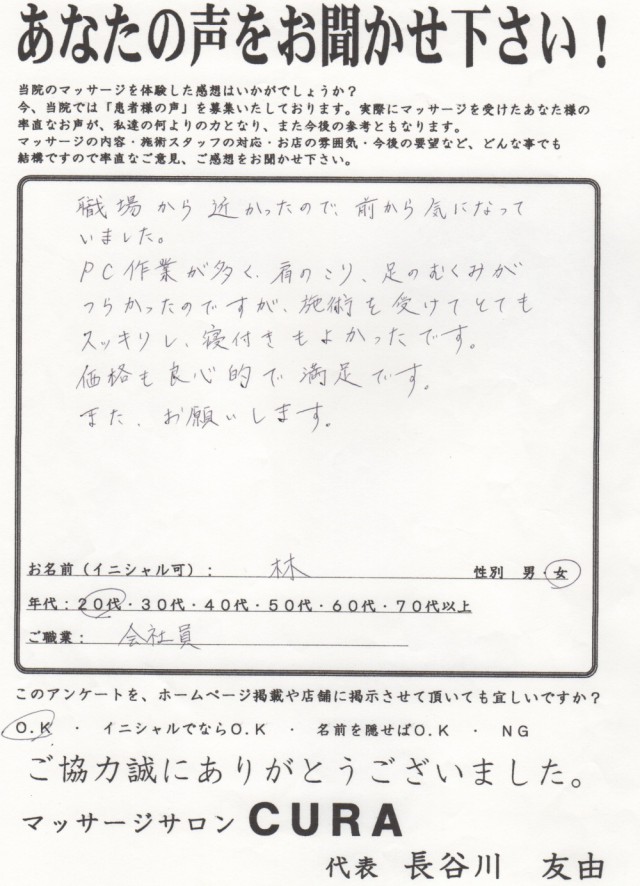 あなたの声をお聞かせ下さい！
当院のマッサージを体験した感想はいかがでしょうか？
今、当院では「患者様の声」を募集いたしております。実際にマッサージを受けたあなた様の
率直なお声が、私達の何よりの力となり、また今後の参考ともなります。
マッサージの内容・施術スタッフの対応・お店の雰囲気・今後の要望など、どんな事でも
結構ですので率直なご意見、ご感想をお聞かせ下さい。
職場から近かったので、前から気になって
いました。
PC作業が多く、肩のこり、足のむくみが
つらかったのですが、施術を受けてとても
スッキリし、寝付きもよかったです。
価格も良心的で満足です。
また、お願いします。
お名前（イニシャル可）： 林 性別 男・女
年代：２０代・３０代・４０代・５０代・６０代・７０代以上
ご職業： 会社員
このアンケートを、ホームページ掲載や店舗に掲示させて頂いても宜しいですか？
O.K ・ イニシャルでならO.K ・ 名前を隠せばO.K ・ NG
ご協力誠にありがとうございました。
マッサージサロン CURA
代表 長谷川 友由